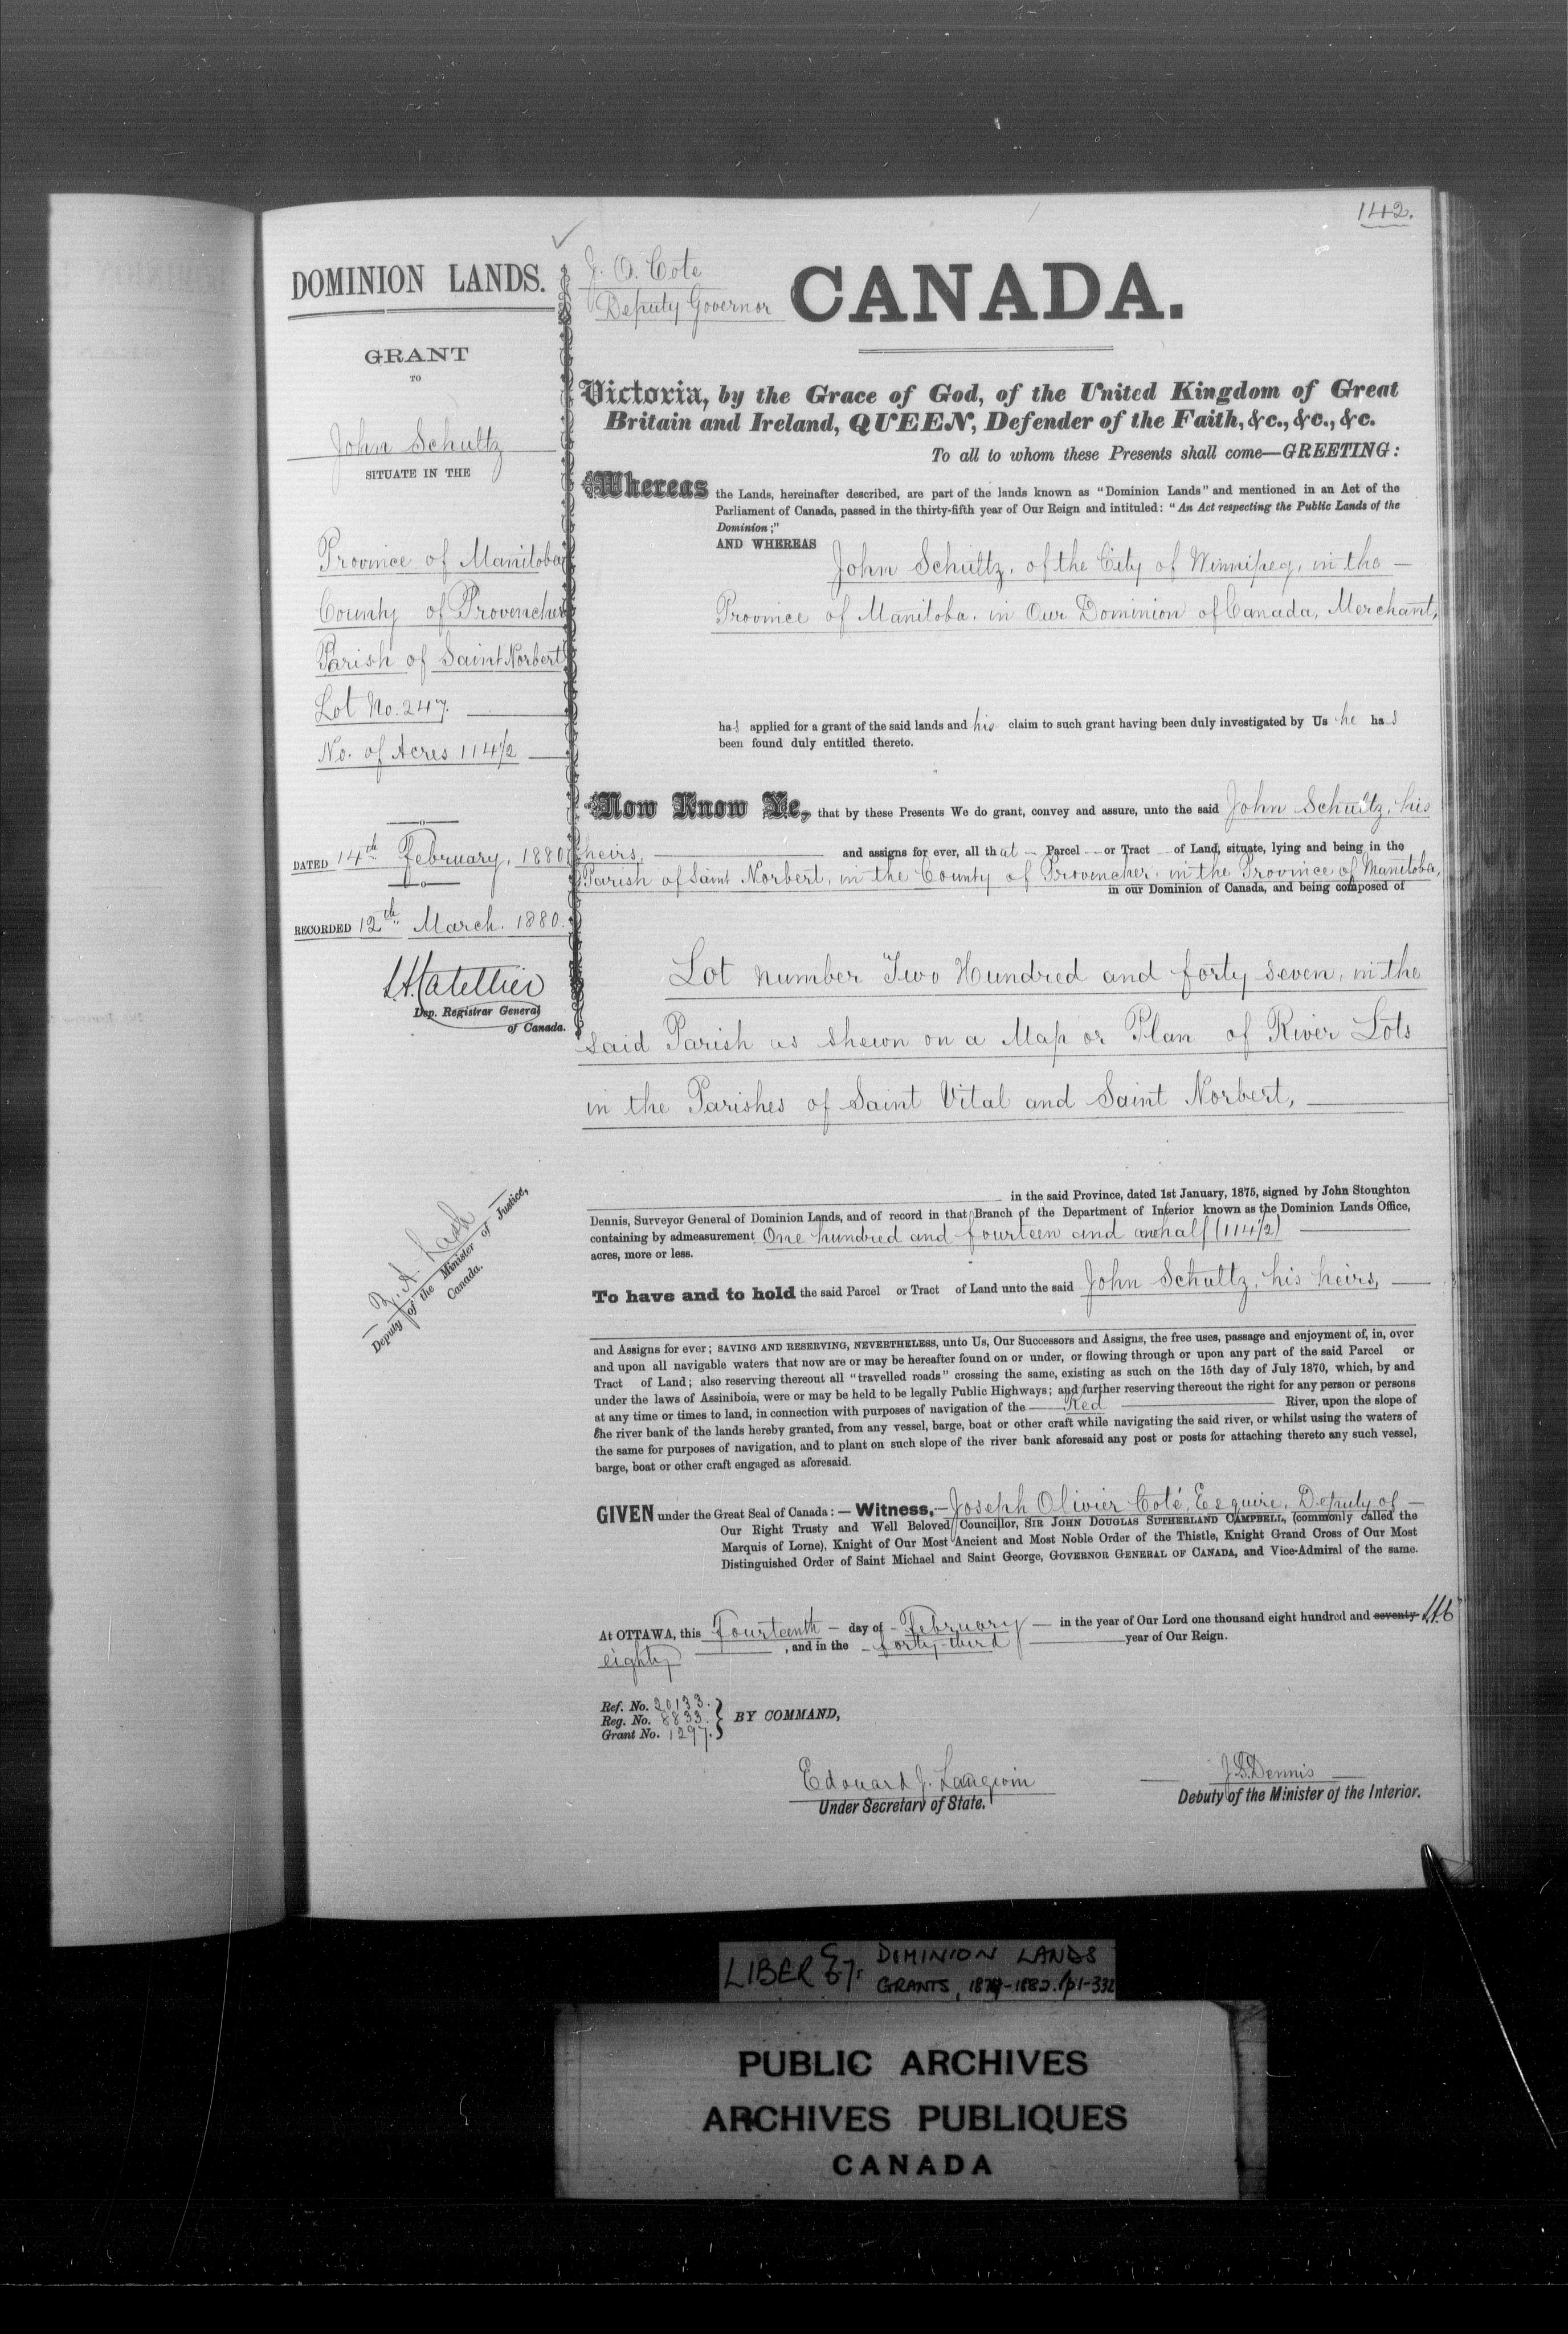 142.
DOMINION LANDS.
GRANT
TO
John Schultz
SITUATE IN THE
Province of Manitoba
County of Provencher
Parish of Saint Norbert
Lot No. 247.
No. of Acres 114½
DATED 14th February, 1880
RECORDED 12th March. 1880.
Dep. Registrar General
of Canada.
Z. A. Lash
Deputy of the Minister of Justice,
Canada.
J. O. Cote
Deputy Governor
CANADA.
Victoria, by the Grace of God, of the United Kingdom of Great
Britain and Ireland, QUEEN, Defender of the Faith, &c., &c., &c.
To all to whom these Presents shall come—GREETING:
Whereas the Lands, hereinafter described, are part of the lands known as "Dominion Lands" and mentioned in an Act of the
Parliament of Canada, passed in the thirty-fifth year of Our Reign and intituled: "An Act respecting the Public Lands of the
Dominion;"
AND WHEREAS John Schultz, of the City of Winnipeg, in the
Province of Manitoba, in Our Dominion of Canada, Merchant,
has applied for a grant of the said lands and his claim to such grant having been duly investigated by Us he has
been found duly entitled thereto.
Now Know Ye, that by these Presents We do grant, convey and assure, unto the said John Schultz, his
heirs, and assigns for ever, all that Parcel or Tract of Land, situate, lying and being in the
Parish of Saint Norbert, in the County of Provencher, in the Province of Manitoba,
in our Dominion of Canada, and being composed of
Lot number Two Hundred and forty seven, in the
said Parish as shewn on a Map or Plan of River Lots
in the Parishes of Saint Vital and Saint Norbert,
in the said Province, dated 1st January, 1875, signed by John Stoughton
Dennis, Surveyor General of Dominion Lands, and of record in that Branch of the Department of Interior known as the Dominion Lands Office,
containing by admeasurement One hundred and fourteen and one half (114½)
acres, more or less.
To have and to hold the said Parcel or Tract of Land unto the said John Schultz, his heirs,
and Assigns for ever; SAVING AND RESERVING, NEVERTHELESS, unto Us, Our Successors and Assigns, the free uses, passage and enjoyment of, in, over
and upon all navigable waters that now are or may be hereafter found on or under, or flowing through or upon any part of the said Parcel or
Tract of Land; also reserving thereout all "travelled roads" crossing the same, existing as such on the 15th day of July 1870, which, by and
under the laws of Assiniboia, were or may be held to be legally Public Highways; and further reserving thereout the right for any person or persons
at any time or times to land, in connection with purposes of navigation of the Red River, upon the slope of
the river bank of the lands hereby granted, from any vessel, barge, boat or other craft while navigating the said river, or whilst using the waters of
the same for purposes of navigation, and to plant on such slope of the river bank aforesaid any post or posts for attaching thereto any such vessel,
barge, boat or other craft engaged as aforesaid.
GIVEN under the Great Seal of Canada:—Witness,—Joseph Olivier Coté, Esquire, Deputy of
Our Right Trusty and Well Beloved Councillor, SIR JOHN DOUGLAS SUTHERLAND CAMPBELL, (commonly called the
Marquis of Lorne), Knight of Our Most Ancient and Most Noble Order of the Thistle, Knight Grand Cross of Our Most
Distinguished Order of Saint Michael and Saint George, GOVERNOR GENERAL OF CANADA, and Vice-Admiral of the same.
At OTTAWA, this Fourteenth day of February in the year of Our Lord one thousand eight hundred and seventy
eighty, and in the forty-third year of Our Reign.
Ref. No. 20133.
Reg. No. 8833.
Grant No. 1297.
BY COMMAND,
Edouard J. Langevin
Under Secretary of State.
J. S. Dennis
Deputy of the Minister of the Interior.
LIBER 67: DOMINION LANDS
GRANTS, 1879-1882. pp1-332
PUBLIC ARCHIVES
ARCHIVES PUBLIQUES
CANADA